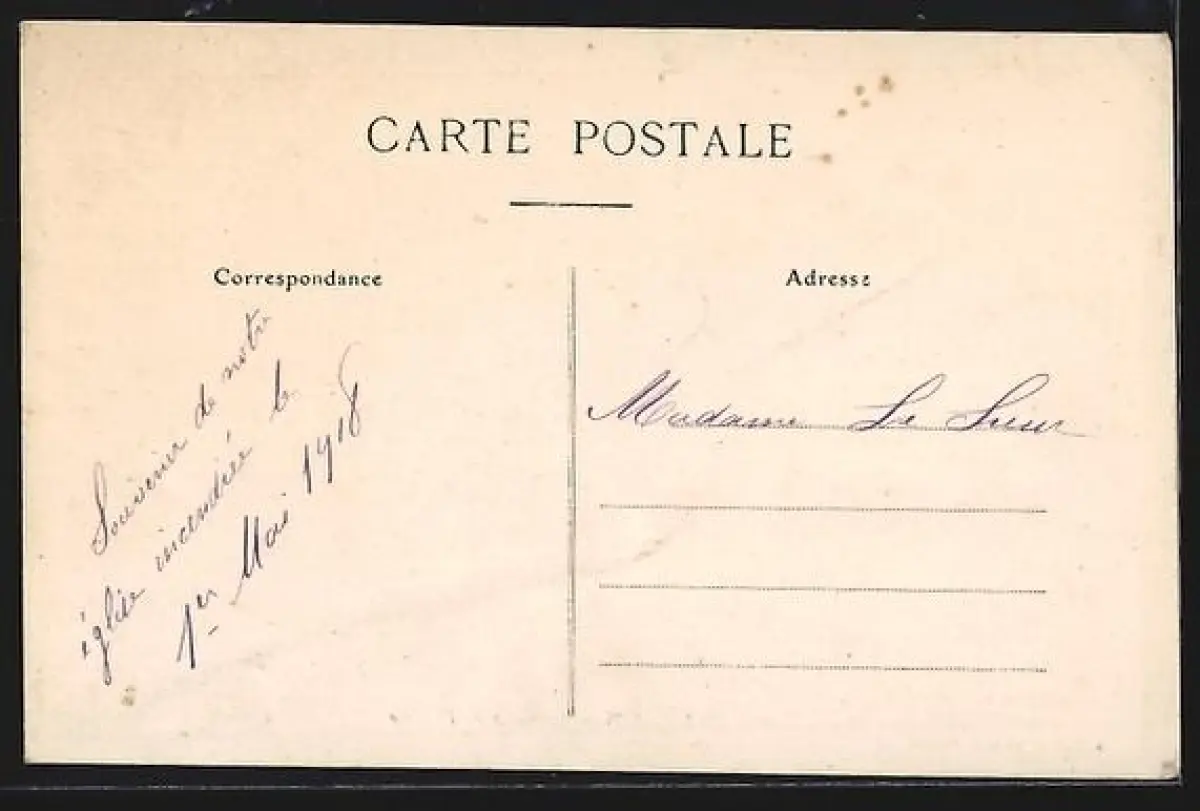 CARTE POSTALE
Correspondance
Adresse
Souvenir de notre
église incendiée le
1er Mai 1918
Madame Le Sueur